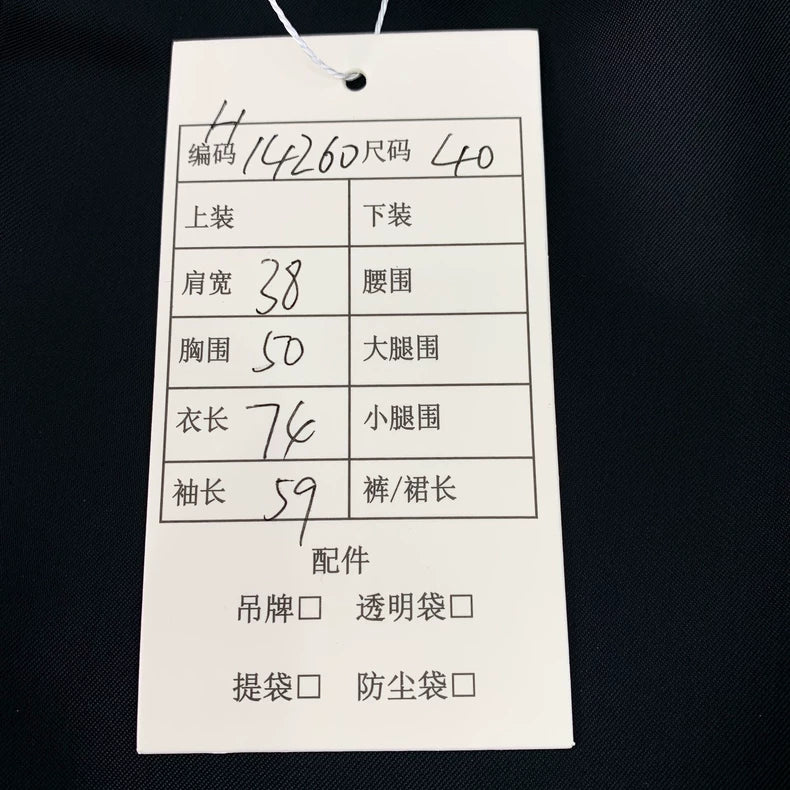 H
编码 14260 尺码 40
上装 下装
肩宽 38 腰围
胸围 50 大腿围
衣长 74 小腿围
袖长 59 裤/裙长
配件
吊牌□ 透明袋□
提袋□ 防尘袋□